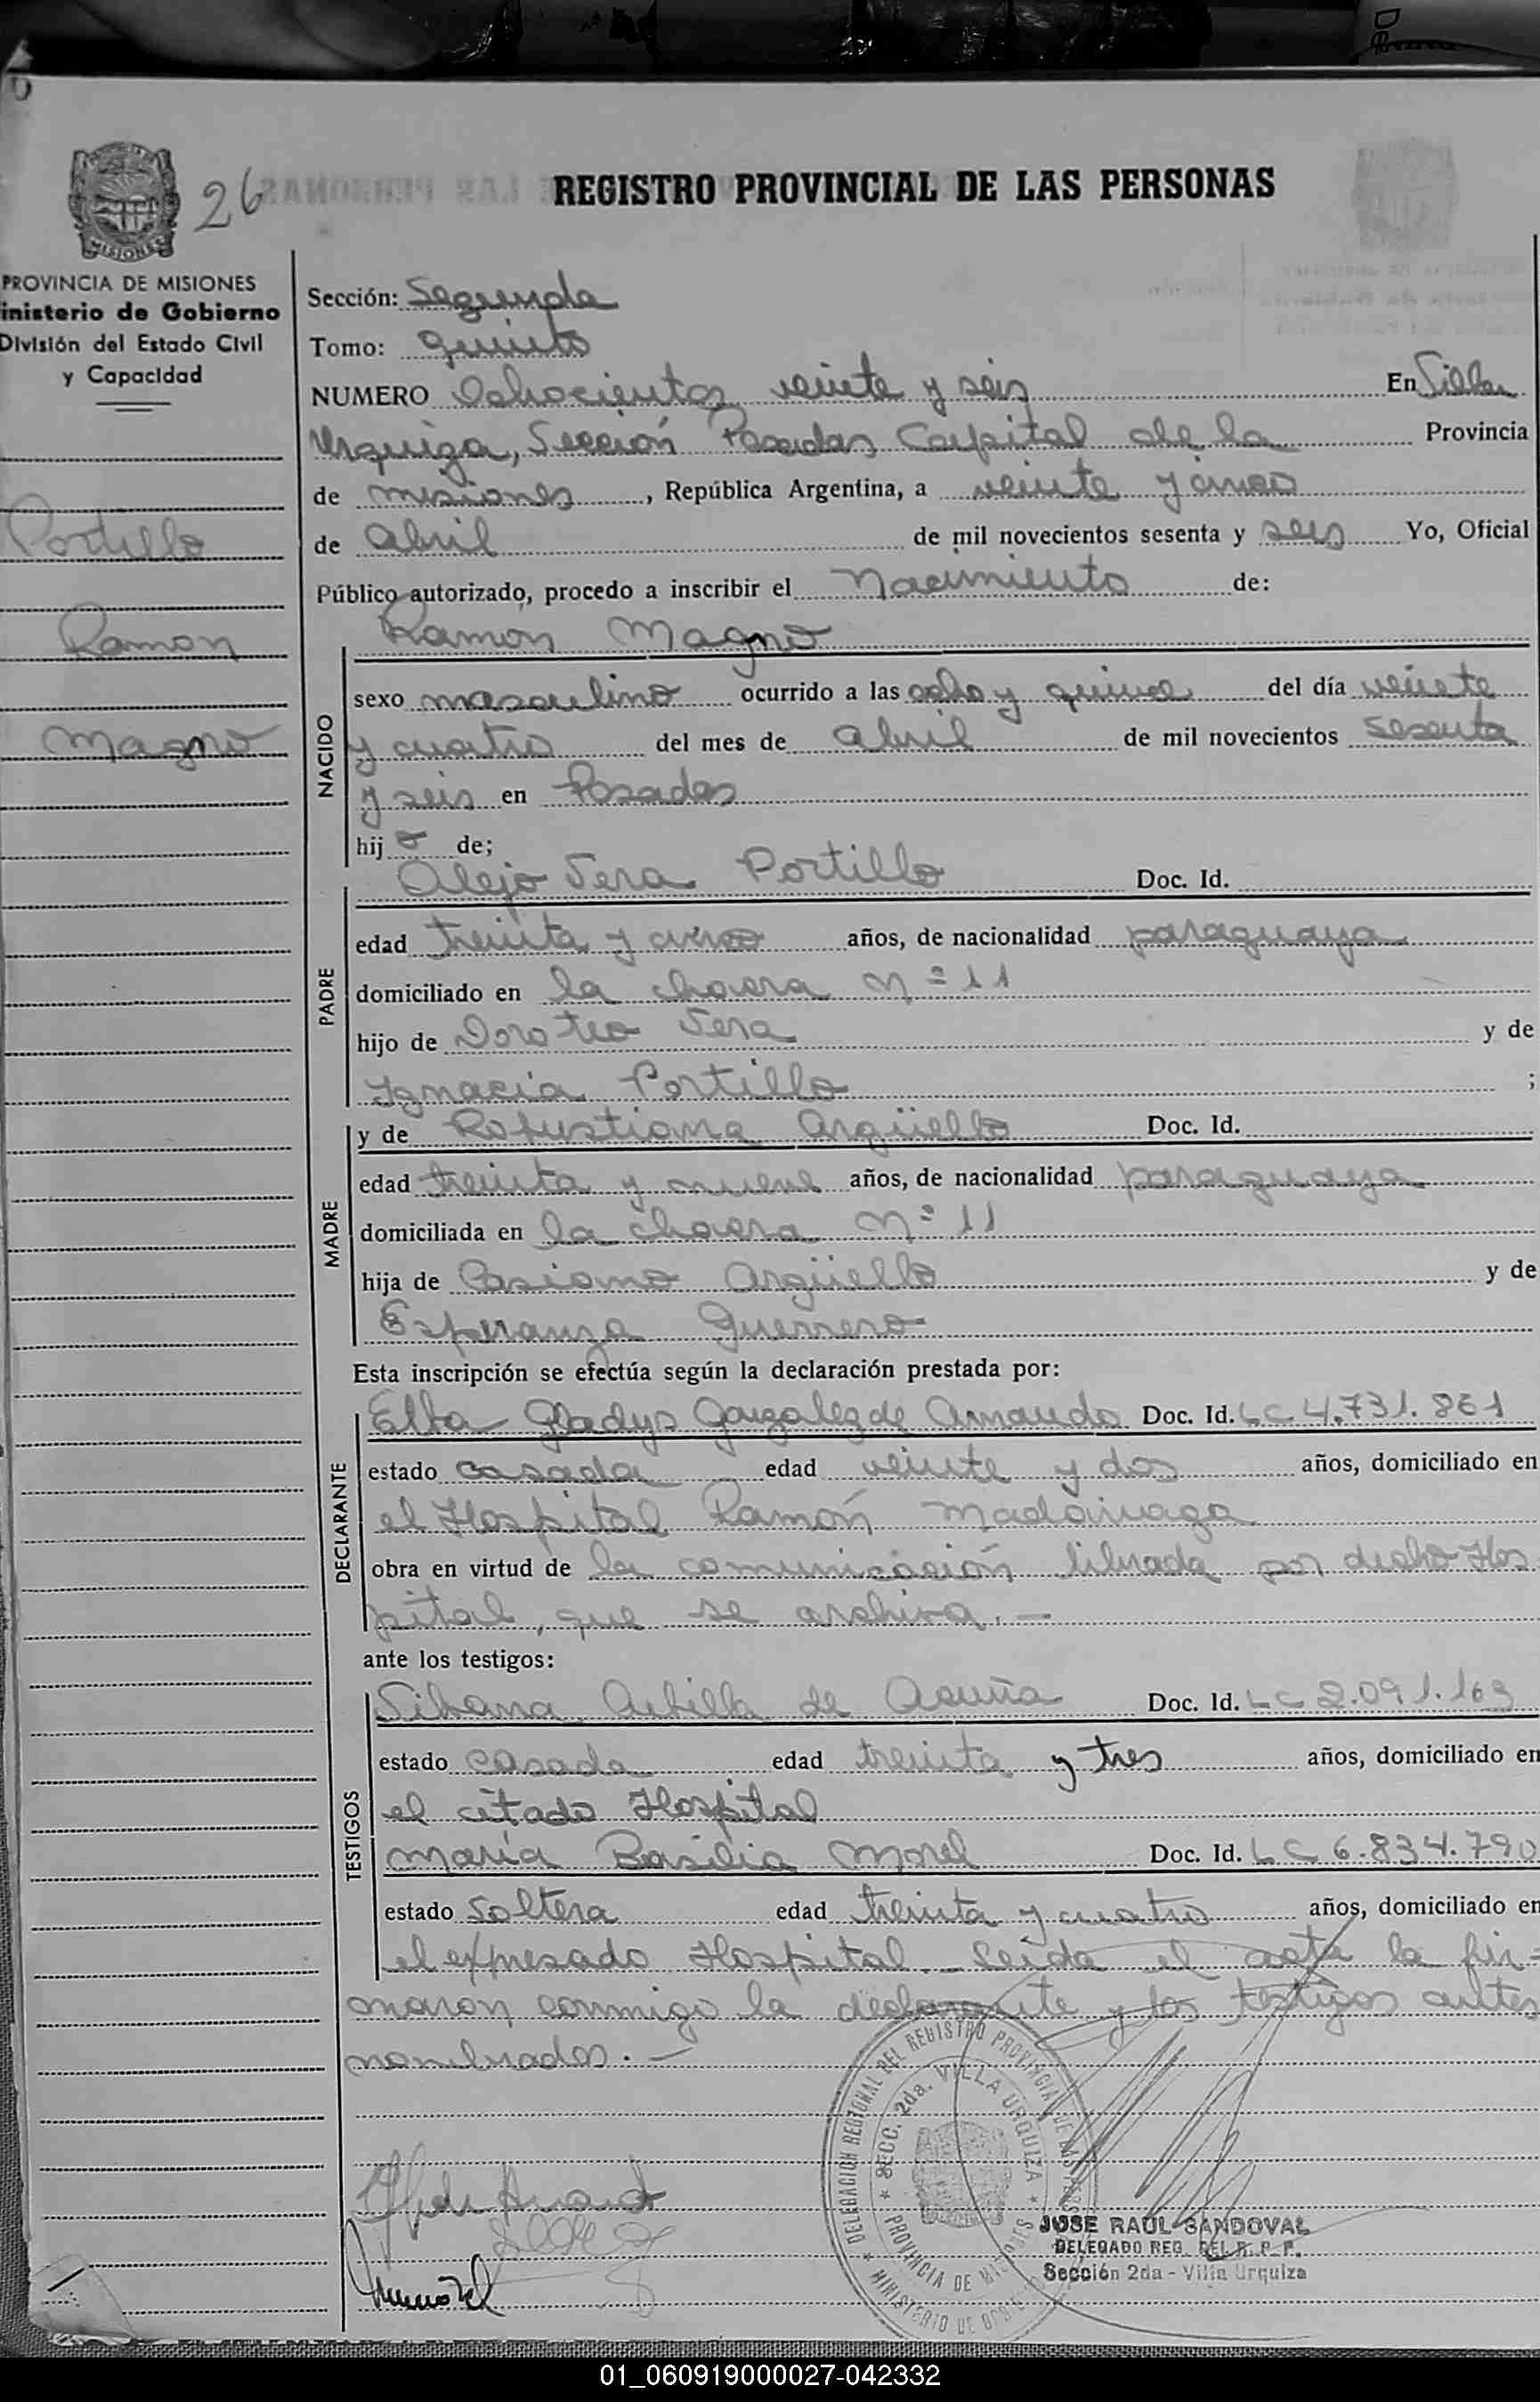 26
REGISTRO PROVINCIAL DE LAS PERSONAS
MISIONES
PROVINCIA DE MISIONES
inisterio de Gobierno
División del Estado Civil
y Capacidad
Portillo
Ramon
Magno
Sección: Segunda
Tomo: quinto
NUMERO Ochocientos veinte y seis En Villa
Urquiza, Sección Posadas Capital de la Provincia
de misiones, República Argentina, a veinte y cinco
de abril de mil novecientos sesenta y seis Yo, Oficial
Público autorizado, procedo a inscribir el nacimiento de:
Ramon Magno
NACIDO
sexo masculino ocurrido a las ocho y quince del día veinte
y cuatro del mes de abril de mil novecientos sesenta
y seis en Posadas
hijo de;
PADRE
Alejo Vera Portillo Doc. Id.
edad treinta y cinco años, de nacionalidad paraguaya
domiciliado en la chacra nº 11
hijo de Doroteo Vera y de
Ignacia Portillo ;
MADRE
y de Robustiana Argüello Doc. Id.
edad treinta y nueve años, de nacionalidad paraguaya
domiciliada en la chacra nº 11
hija de Casiano Argüello y de
Esperanza Guerrero
Esta inscripción se efectúa según la declaración prestada por:
DECLARANTE
Elba Gladys Gonzalez de Amando Doc. Id. LC 4.731.861
estado casada edad veinte y dos años, domiciliado en
el Hospital Ramón Madariaga
obra en virtud de la comunicación librada por dicho Hos
pital, que se archiva.-
ante los testigos:
TESTIGOS
Silvana de Acuña Doc. Id. LC 2.091.163
estado casada edad treinta y tres años, domiciliado en
el citado Hospital
maría Basilia Morel Doc. Id. LC 6.834.790
estado soltera edad treinta y cuatro años, domiciliado en
el expresado Hospital. Leída el acta la fir=
maron conmigo la declarante y los testigos antes
nombrados.-
DELEGACION REGIONAL DEL REGISTRO PROVINCIAL DE LAS PERSONAS
SECC. 2da. VILLA URQUIZA
PROVINCIA DE MISIONES
MINISTERIO DE GOBIERNO
JOSE RAUL SANDOVAL
DELEGADO REG. DEL R. P. P.
Sección 2da - Villa Urquiza
01_060919000027-042332